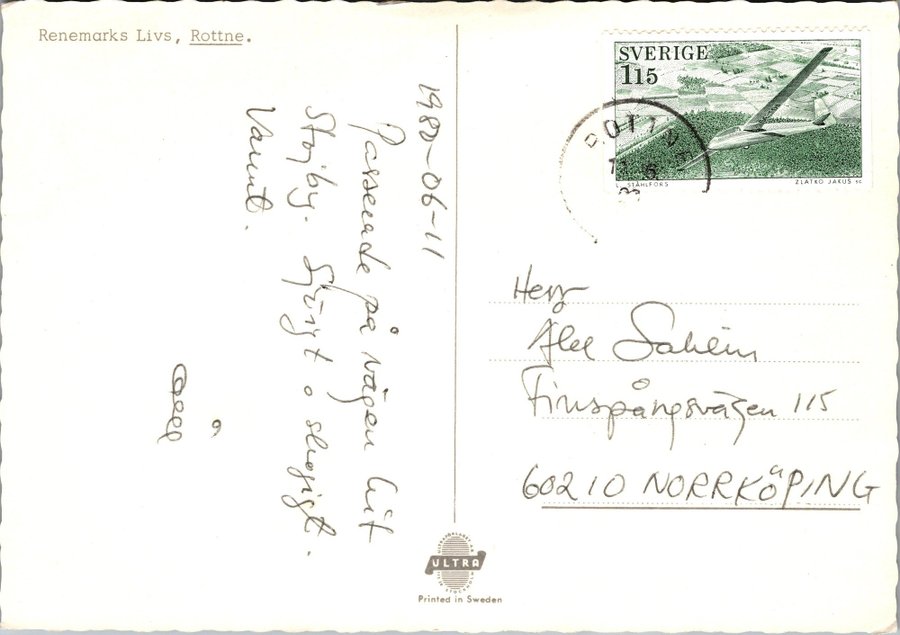 Renemarks Livs, Rottne.
1980-06-11
Passerade på vägen hit
Stojby. Sjörigt o skogigt.
Varmt.
SVERIGE
115
L. STÅHLFORS
ZLATKO JAKUS SC
ROTTNE
11 6
Herr
Finspångsvägen 115
60210 NORRKÖPING
ULTRA
Printed in Sweden